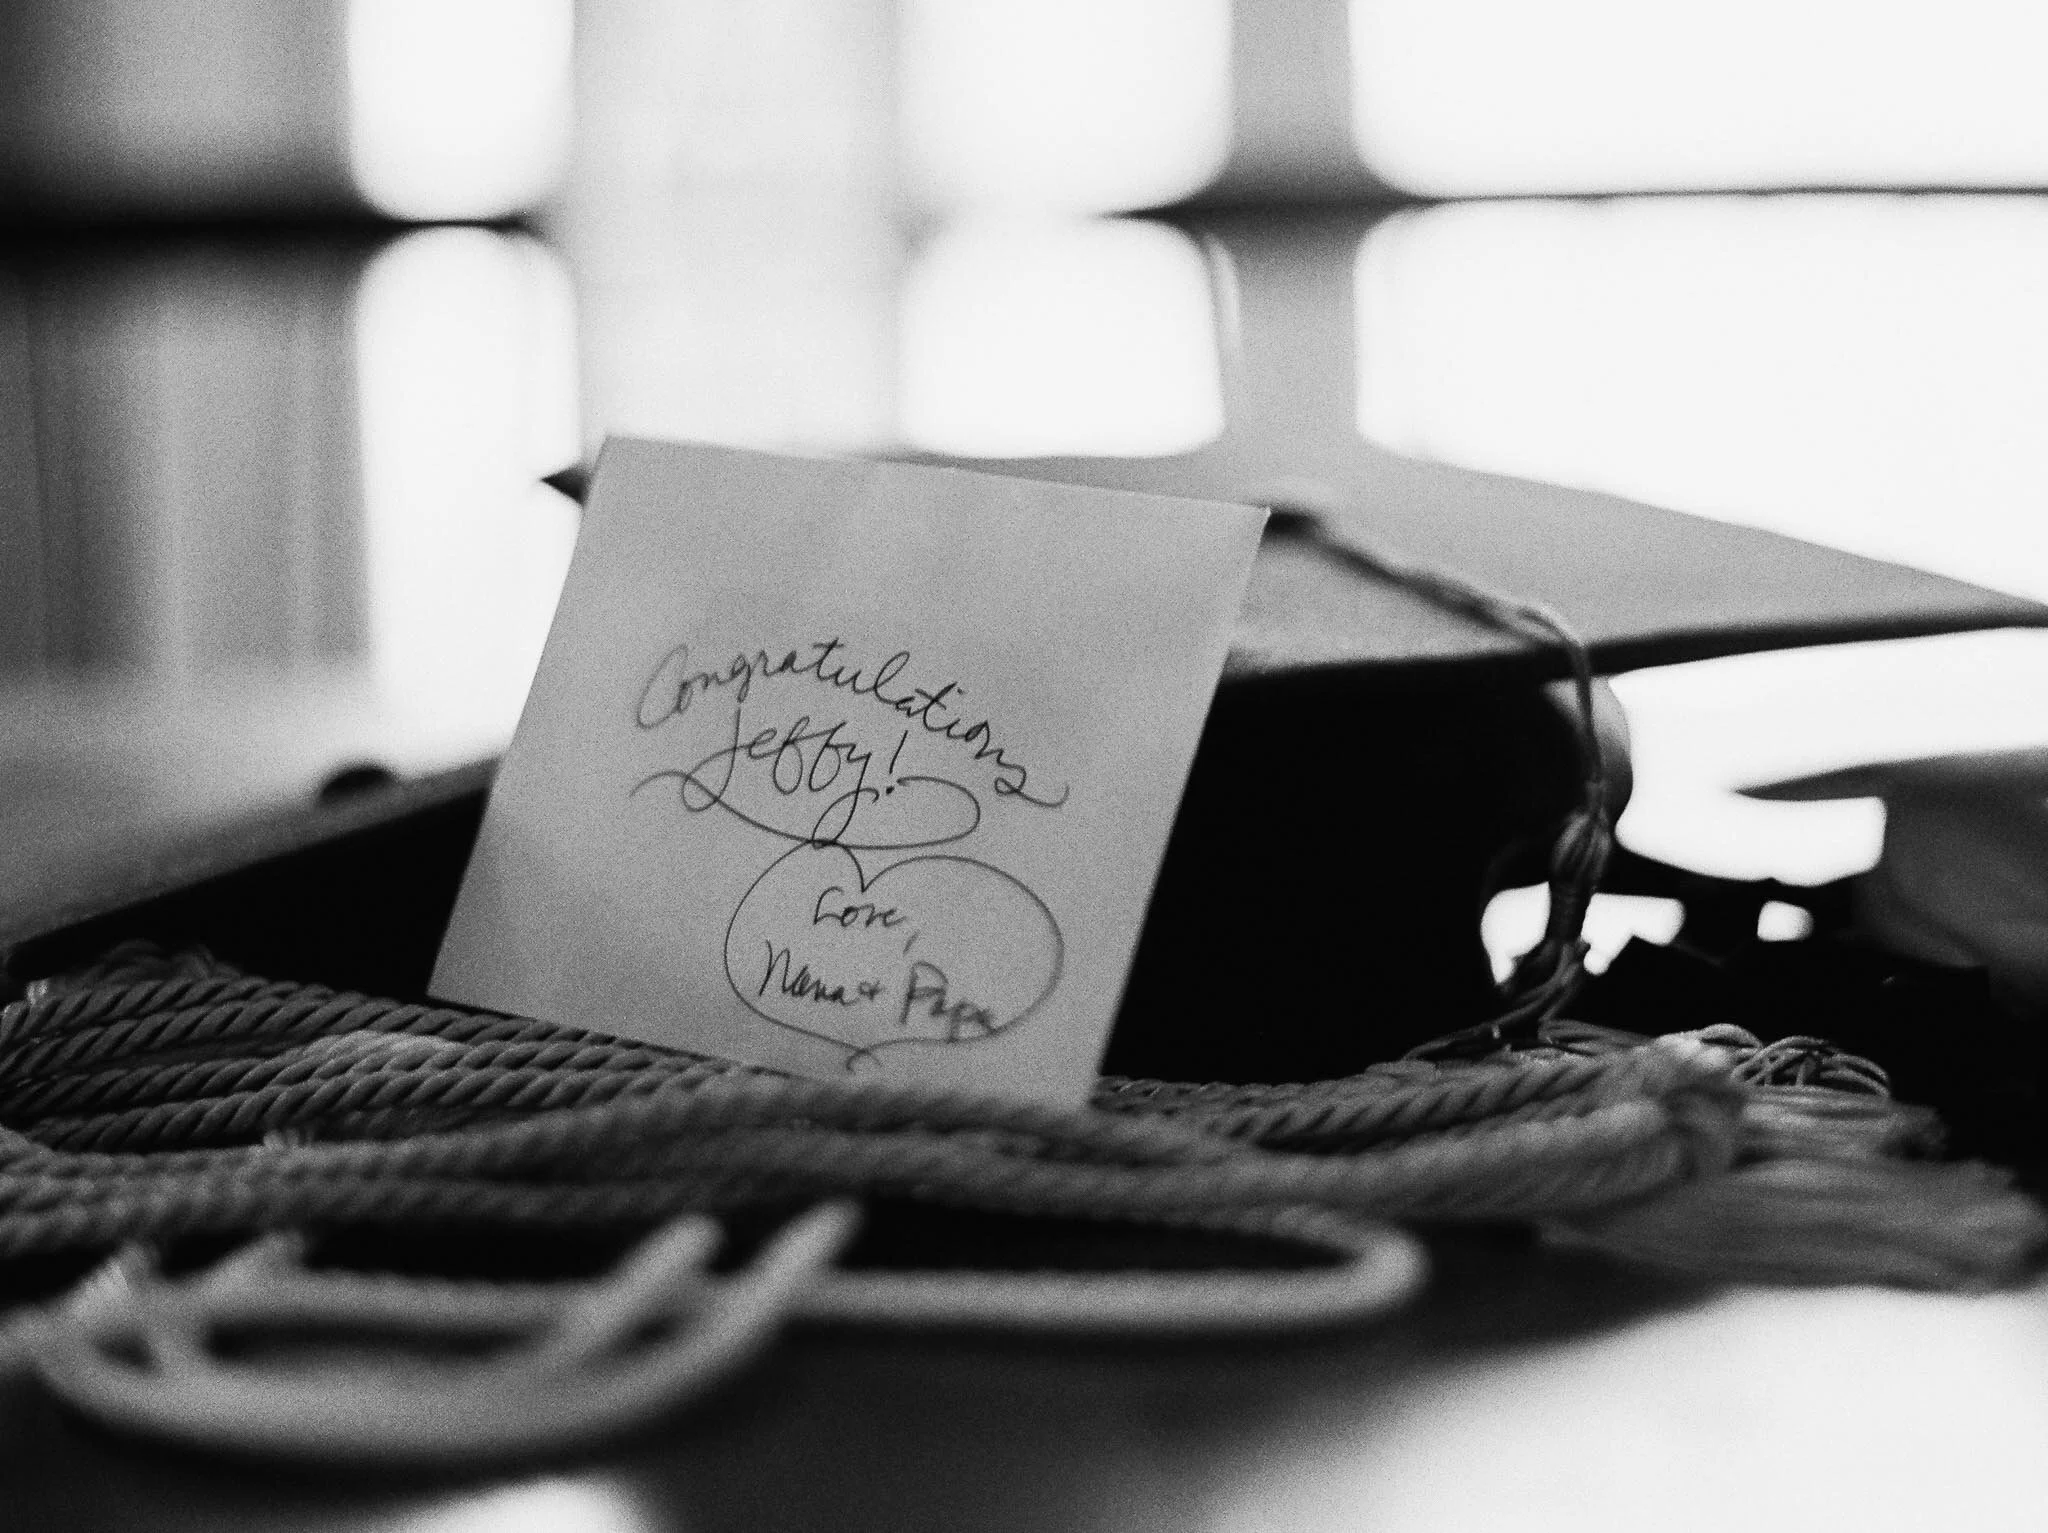 Congratulations
Jeffy!
Love,
Nana & Papa